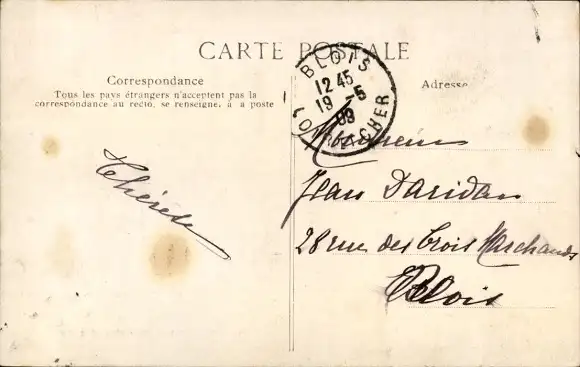 CARTE POSTALE
Correspondance
Tous les pays étrangers n'acceptent pas la
correspondance au recto, se renseigne, à a poste
Adresse
BLOIS
12 45
19 -5
09
LOI CHER
Thérèse
Monsieur
Jean Daridan
28 rue des trois Marchands
Blois